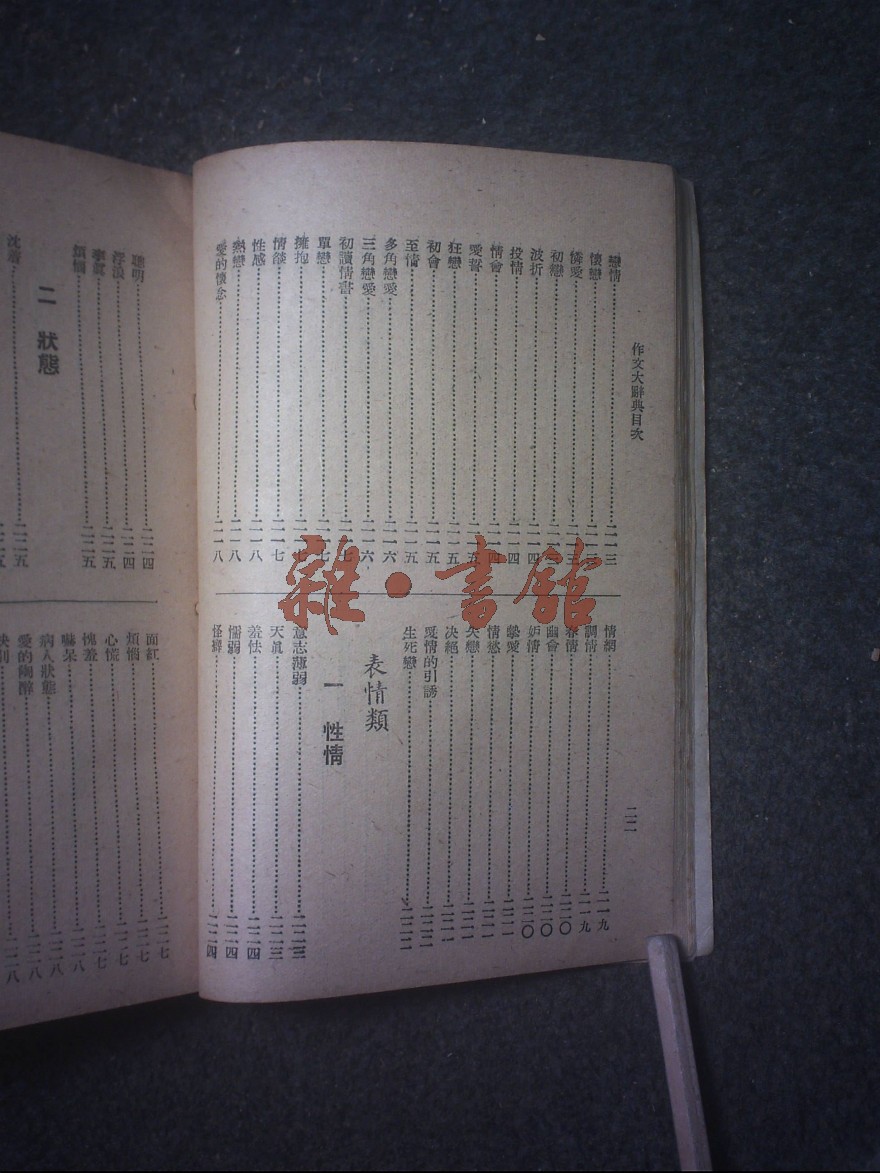 作文大辭典目次
二二
戀情……二一三
懷戀……二一三
憐愛……二一三
初戀……二一三
波折……二一四
投情……二一四
情會……二一四
愛誓……二一五
狂戀……二一五
初會……二一五
至情……二一五
多角戀愛……二一六
三角戀愛……二一六
初讀情書……二一七
單戀……二一七
擁抱……二一七
情欲……二一七
性感……二一八
熱戀……二一八
愛的懷念……二一八
情網……二一九
調情……二一九
春情……二二〇
幽會……二二〇
妒情……二二〇
摯愛……二二一
情慾……二二一
失戀……二二一
决絕……二二一
愛情的引誘……二二二
生死戀……二二二
表情類
一 性情
意志薄弱……二二三
天眞……二二三
羞怯……二二四
懦弱……二二四
怪癖……二二四
聰明……二二四
浮浪……二二四
率眞……二二五
煩惱……二二五
二 狀態
沈着……二二五
面紅……二二七
煩惱……二二七
心慌……二二七
愧羞……二二七
嚇呆……二二八
病人狀態……二二八
愛的陶醉……二二八
雜·書館